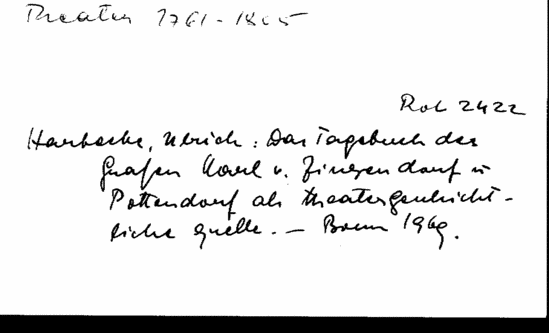 Theater 1761-1805
Rot 2422
Harbecke, Ulrich: Das Tagebuch des
Grafen Karl v. Zinzendorf u
Pottendorf als theatergeschicht-
liche Quelle. – Bonn 1969.